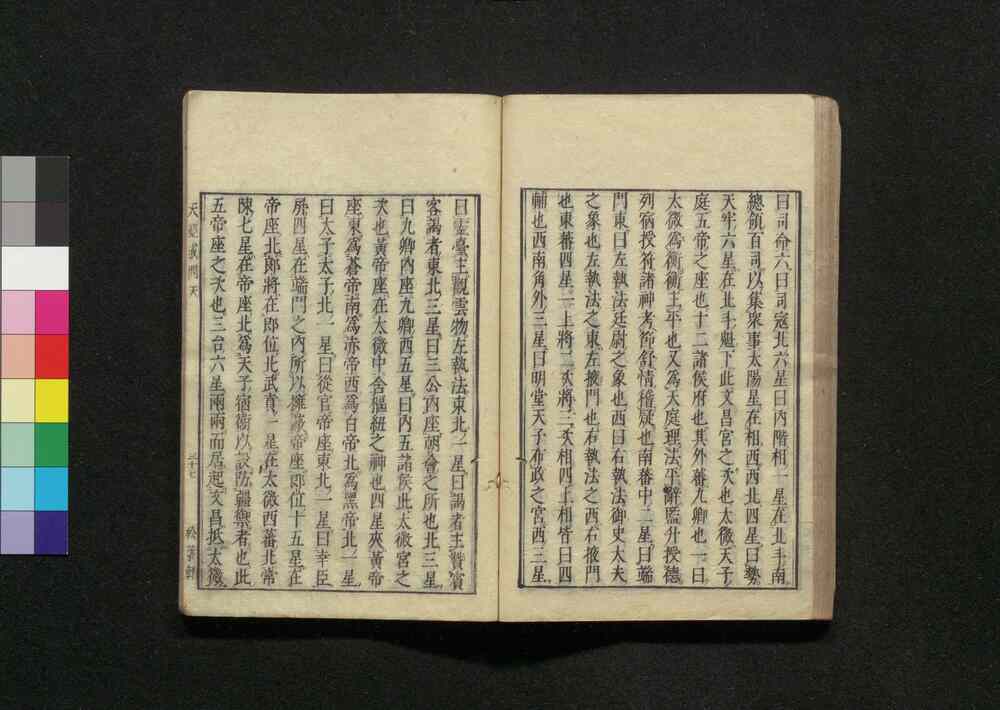 曰司命六曰司寇北六星曰內階相一星在北斗南
總領百司以集衆事太陽星在相西西北四星曰勢
天牢六星在北斗魁下此文昌宮之次也太微天子
庭五帝之座也十二諸侯府也其外蕃九卿也一曰
太微爲衡衡主平也又爲天庭理法平辭監升授德
列宿授符諸神考節舒情稽疑也南蕃中二星曰端
門東曰左執法廷尉之象也西曰右執法御史大夫
之象也左執法之東左掖門也右執法之西右掖門
也東蕃四星一上將二次將三次相四上相皆曰四
輔也西南角外三星曰明堂天子布政之宮西三星
曰靈臺主觀雲物左執法東北一星曰謁者主贊賓
客謁者東北三星曰三公內座朝會之所也北三星
曰九卿內座九卿西五星曰內五諸侯此太微宮之
次也黃帝座在太微中含樞紐之神也四星夾黃帝
座東爲蒼帝南爲赤帝西爲白帝北爲黑帝北一星
曰太子太子北一星曰從官帝座東北一星曰幸臣
屏四星在端門之內所以擁蔽帝座郎位十五星在
帝座北郎將在郎位北武賁一星在太微西蕃北常
陳七星在帝座北爲天子宿衛以設防疆禦者也此
五帝座之次也三台六星兩兩而居起文昌抵太微
天經或問 天
三十七
松葉軒